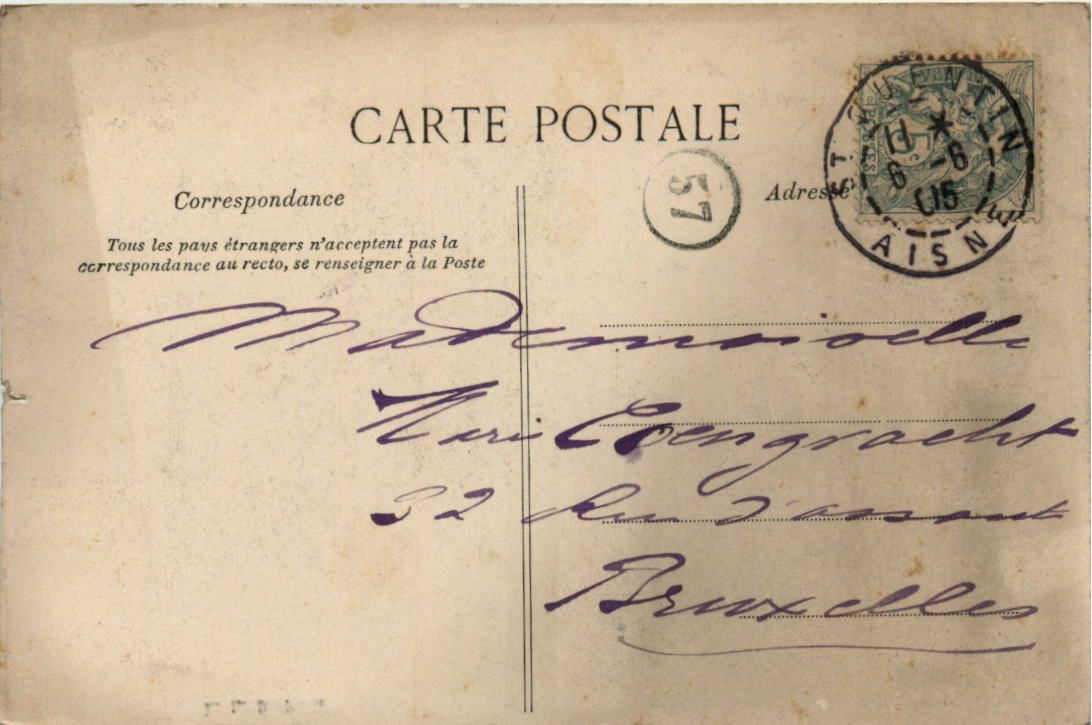 CARTE POSTALE
57
Correspondance
Adresse
Tous les pays étrangers n'acceptent pas la
correspondance au recto, se renseigner à la Poste
ST QUENTIN
11 *
6 -6
05
AISNE
Mademoiselle
Marie
32 Rue d'assaut
Bruxelles